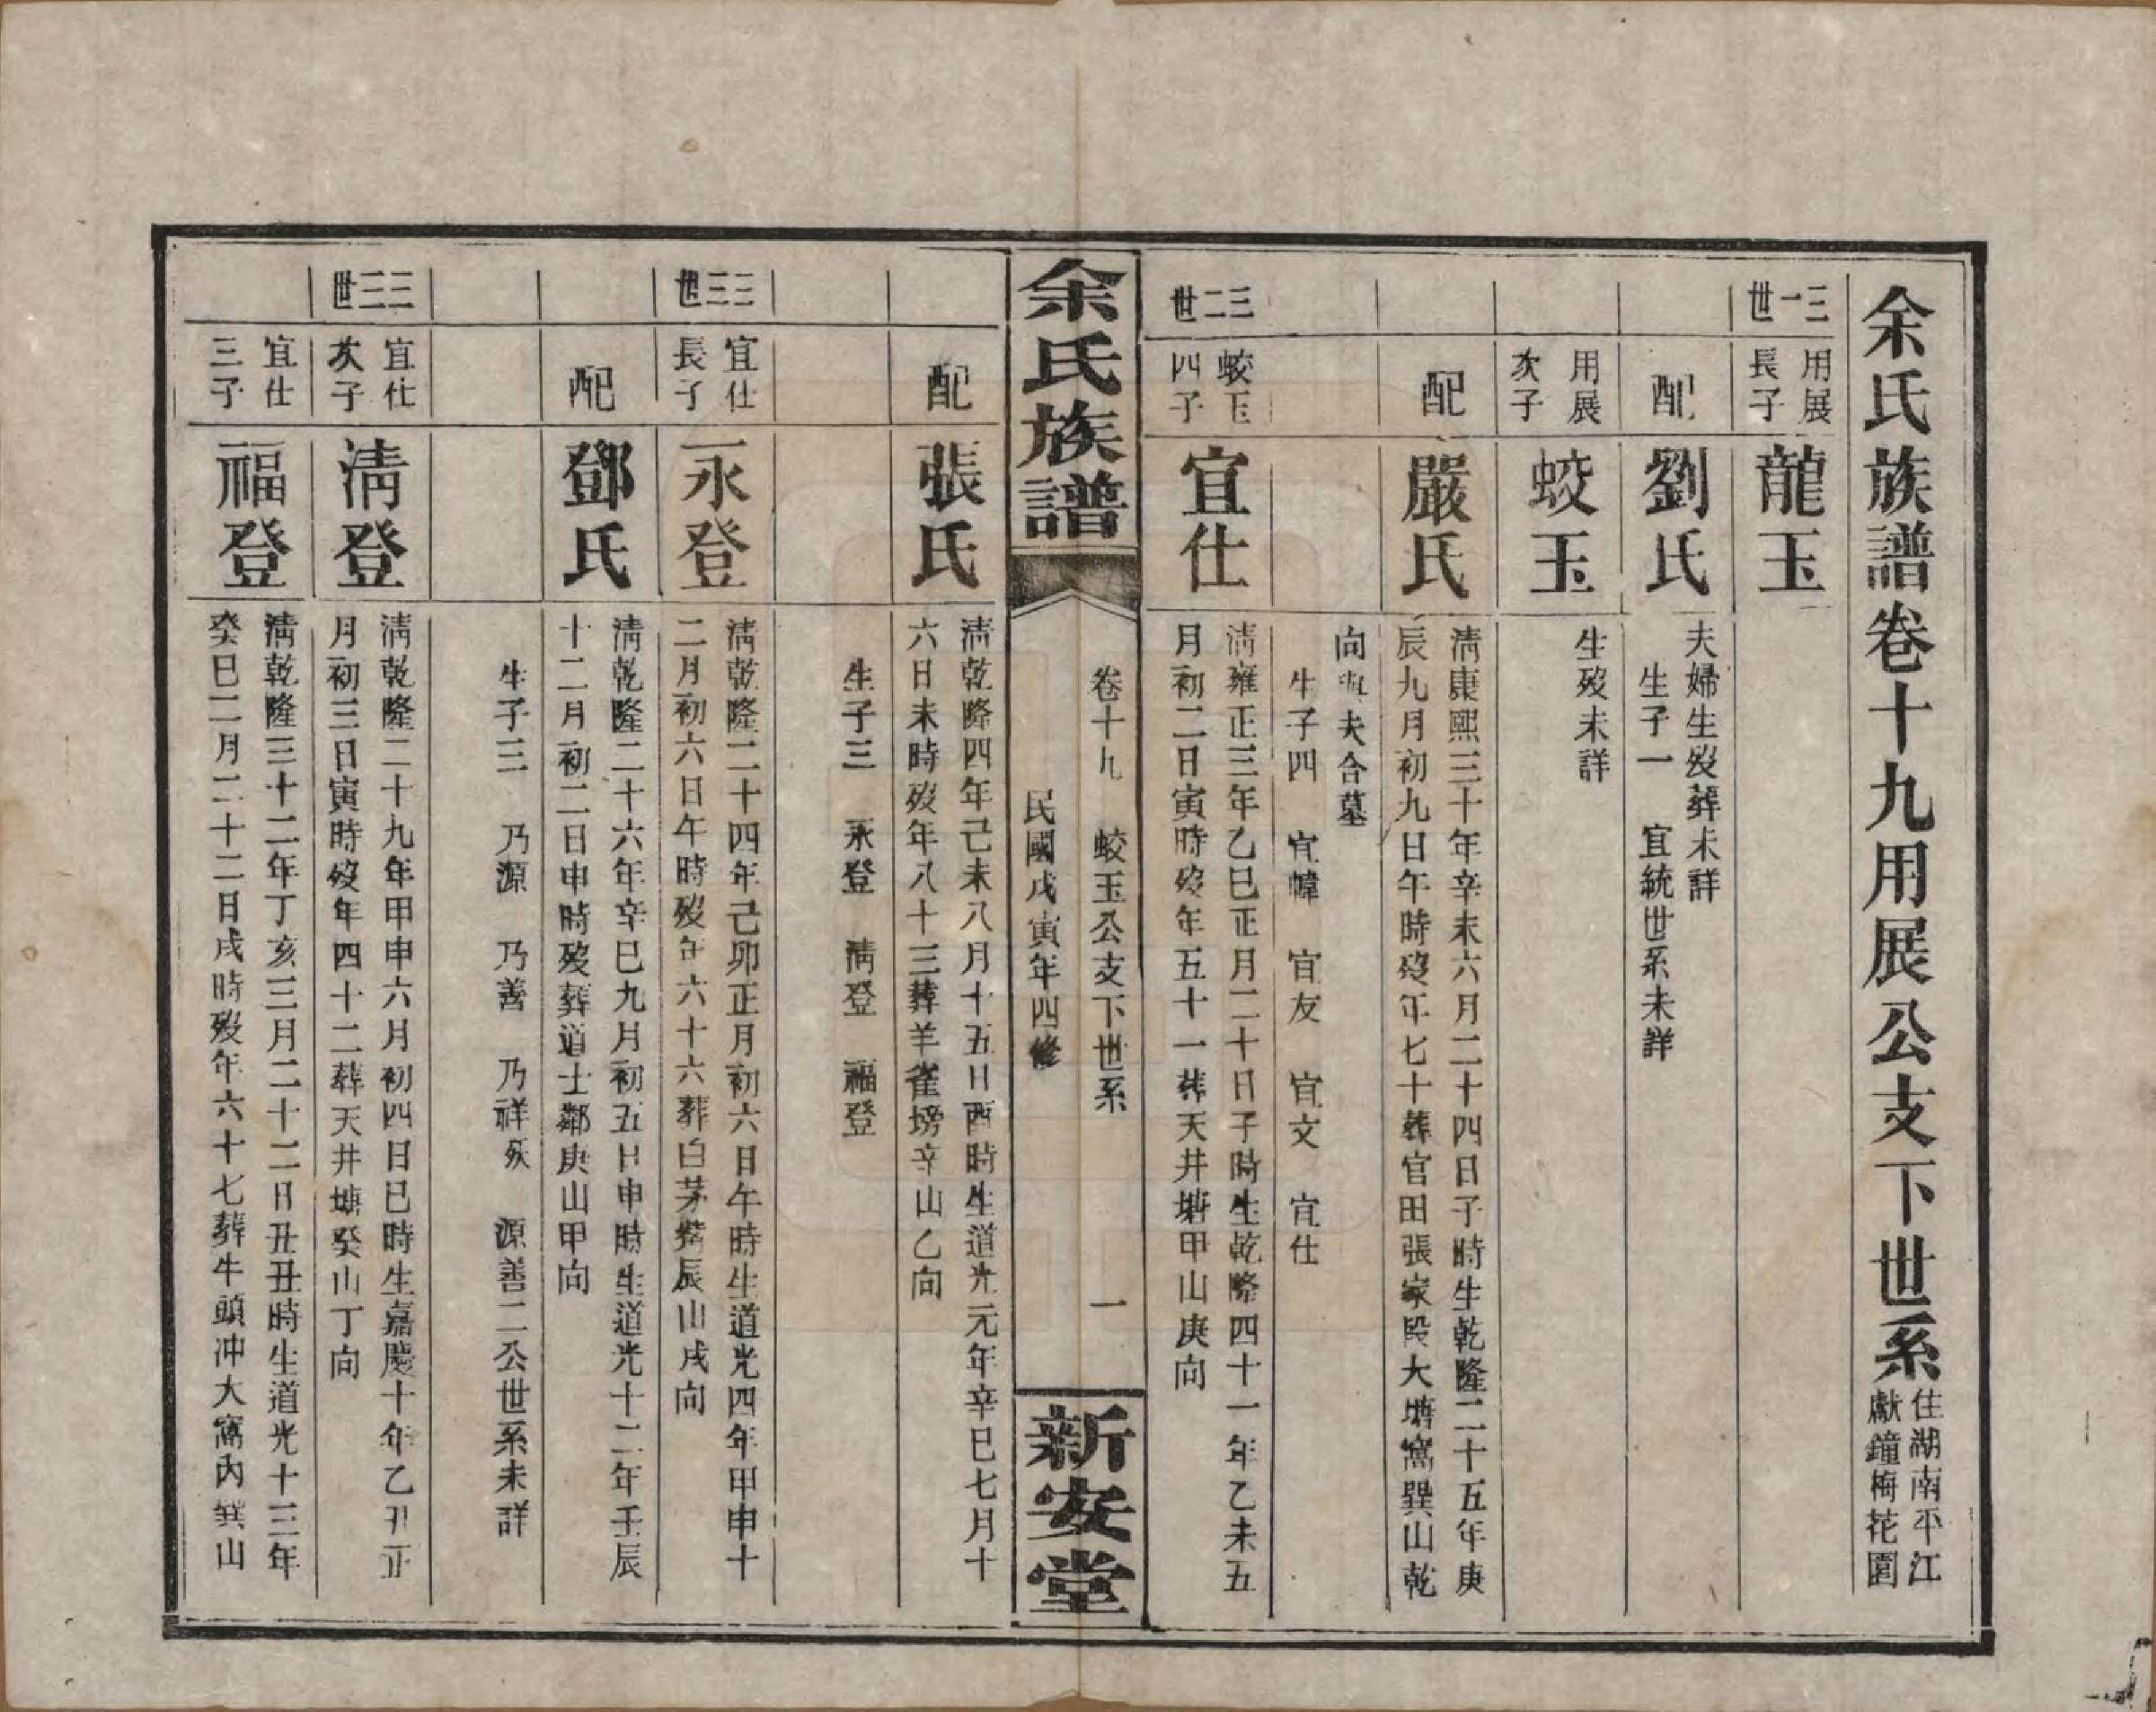 余氏族譜卷十九用展公支下世系
住湖南平江
獻鐘梅花園
三一世
用展
長子
龍玉
配
劉氏
夫婦生歿葬未詳
生子一 宜統世系未詳
用展
次子
蛟玉
生歿未詳
配
嚴氏
清康熙三十年辛未六月二十四日子時生乾隆二十五年庚
辰九月初九日午時歿年七十葬官田張家段大塘窩巽山乾
向與夫合墓
生子四 宜幃 宜友 宜文 宜仕
三二世
蛟玉
四子
宜仕
清雍正三年乙巳正月二十日子時生乾隆四十一年乙未五
月初二日寅時歿年五十一葬天井塘甲山庚向
余氏族譜
卷十九 蛟玉公支下世系 一
民國戊寅年四修
新安堂
配
張氏
清乾隆四年己未八月十五日酉時生道光元年辛巳七月十
六日未時歿年八十三葬羊雀塝辛山乙向
生子三 永登 清登 福登
三三世
宜仕
長子
永登
清乾隆二十四年己卯正月初六日午時生道光四年甲申十
二月初六日午時歿年六十六葬白茅辰山戌向
配
鄧氏
清乾隆二十六年辛巳九月初五日申時生道光十二年壬辰
十二月初二日申時歿葬道士鄰庚山甲向
生子三 乃源 乃善 乃祥殀 源善二公世系未詳
三三世
宜仕
次子
清登
清乾隆二十九年甲申六月初四日巳時生嘉慶十年乙丑正
月初三日寅時歿年四十二葬天井塘癸山丁向
宜仕
三子
福登
清乾隆三十二年丁亥三月二十二日丑丑時生道光十三年
癸巳二月二十二日戌時歿年六十七葬牛頭冲大窩內巽山